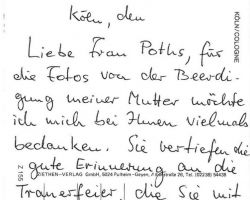 Köln, den
Liebe Frau Poths, für
die Fotos von der Beerdi-
gung meiner Mutter möchte
ich mich bei Ihnen vielmals
bedanken. Sie vertiefen die
gute Erinnerung an die
ZIETHEN-VERLAG GmbH, 5024 Pulheim-Geyen, 26, Tel. (02238) 54438
Trauerfeier, die Sie mit
KÖLN/COLOGNE